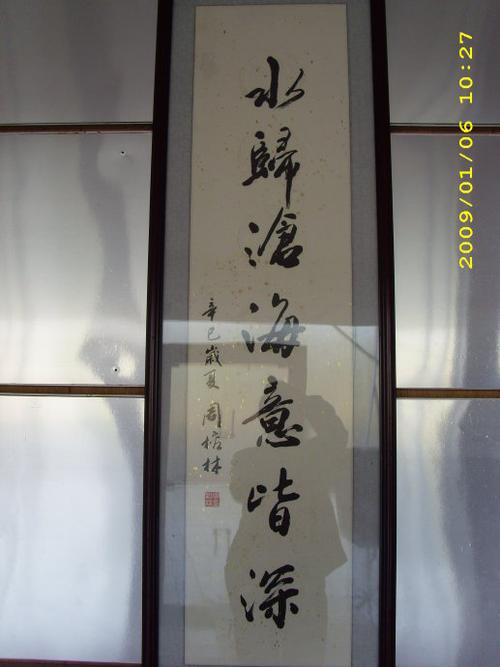 水歸滄海意皆深
辛巳歲夏 周榕林
2009/01/06 10:27